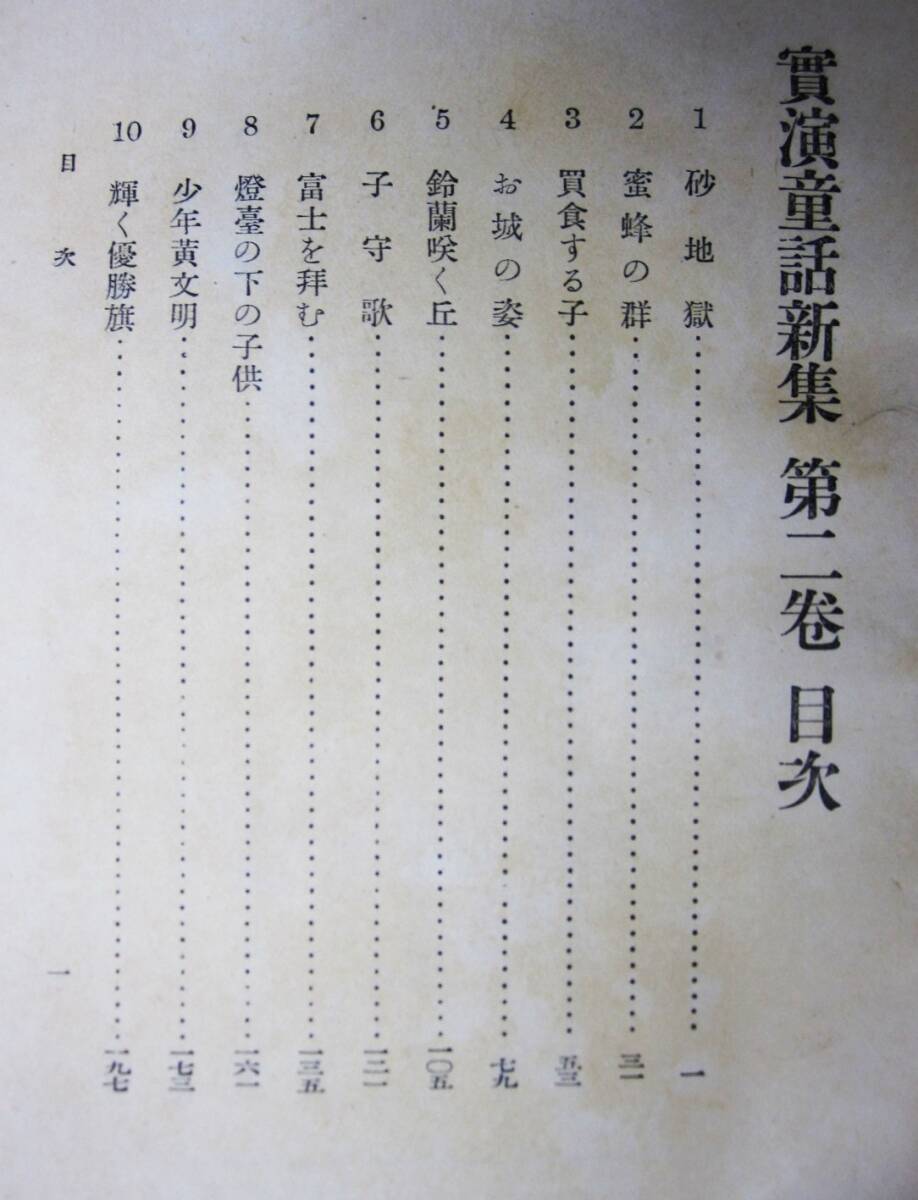 實演童話新集 第二卷 目次
1 砂地獄……一
2 蜜蜂の群……三一
3 買食する子……五三
4 お城の姿……七九
5 鈴蘭咲く丘……一〇五
6 子守歌……一二一
7 富士を拜む……一三五
8 燈臺の下の子供……一六一
9 少年黃文明……一七三
10 輝く優勝旗……一九七
目次
一